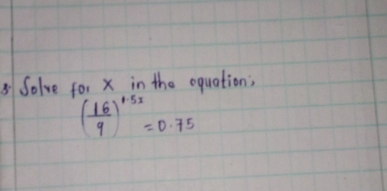 3. Solve for x in the equation;
(16/9)^1.5x = 0.75